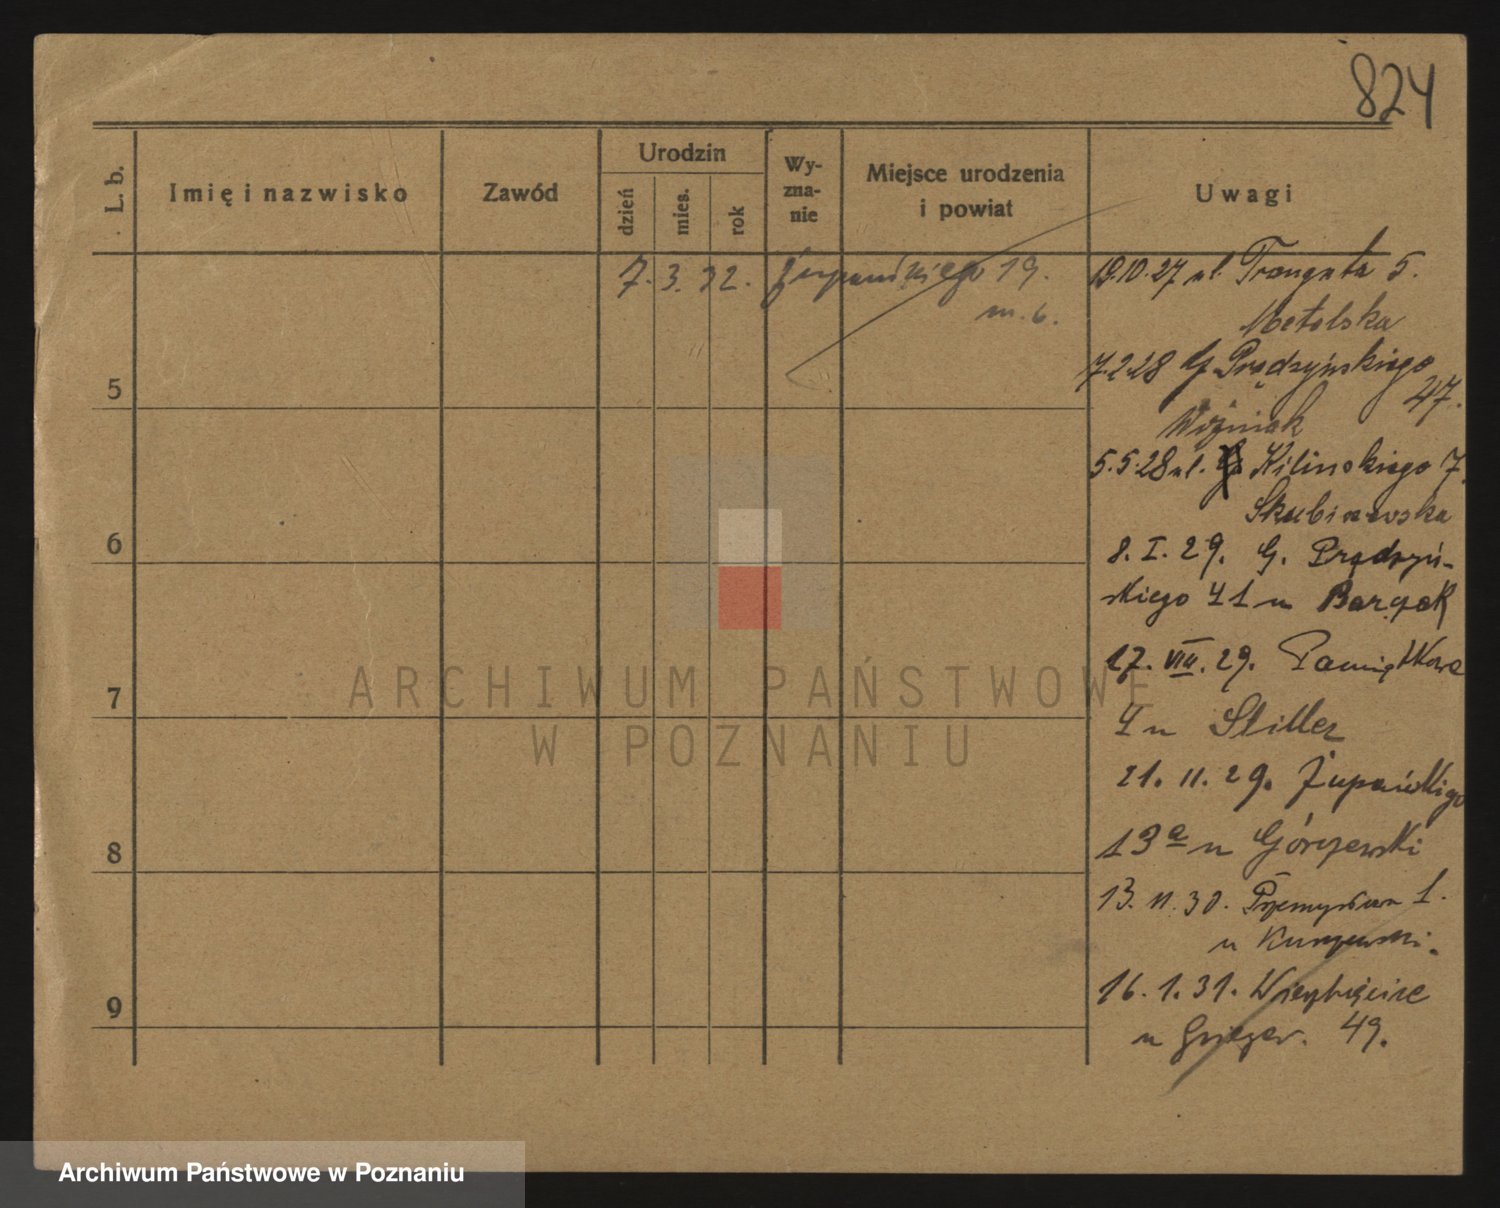 824
L. b.
Imię i nazwisko
Zawód
Urodzin
dzień
mies.
rok
Wy-
zna-
nie
Miejsce urodzenia
i powiat
Uwagi
7. 3. 32. Żupańskiego 19.
m. 6.
5
6
7
8
9
19.10.27 ul. Traugutta 5.
Metelska
7.2.28 G. Prądzyńskiego
47.
Woźniak
5.5.28 ul. Kilinskiego 7.
Skubiszewska
8. I. 29. G. Prądzyń-
skiego 41 u
17. VIII. 29. Pamiątkowa
4 u Stiller
21. 11. 29. Żupańskigo
13 a u Górczewski
13. 11. 30. Przemysława 1.
u
16. 1. 31. Wierzbięcice
u 49.
ARCHIWUM PAŃSTWOWE
W POZNANIU
Archiwum Państwowe w Poznaniu